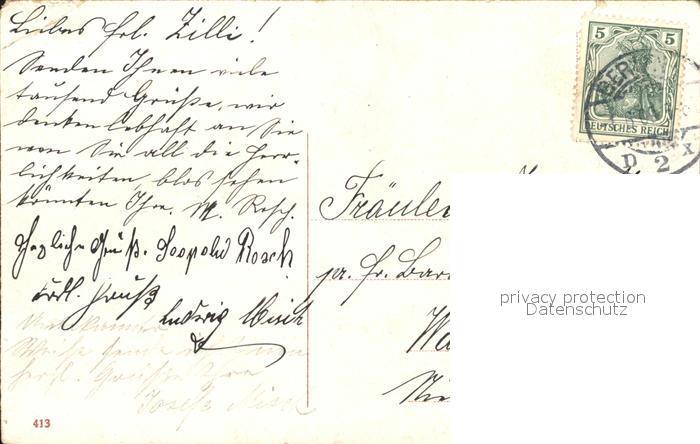 Liebes Frl. Zilli!
Senden Ihnen viele
tausend Grüße, wir
denken lebhaft an Sie
wen Sie all die Herr-
lichkeiten, blos sehen
könnten Ihre. M. Rosch.
Herzliche Grüß. Leopold Rosch
Frdl. Gruß
Ludwig Misch
Weise sende
herzl. Grüße Ihre
Josefa Misch
413
5 5
DEUTSCHES REICH
BER
D 2 x
Fräule
pr. Fr. Bar
Wa
privacy protection
Datenschutz